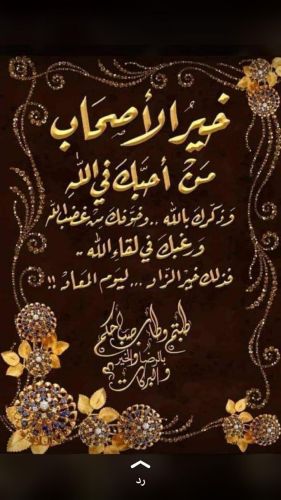 خير الأصحاب
من أحبك في الله
وذكرك بالله .. وخوفك من غضب الله
ورغبك في لقاء الله ..
فذلك خير الزاد ... ليوم المعاد !!
طبتم وطاب صباحكم
بالرضا والخير
والبركات
رد